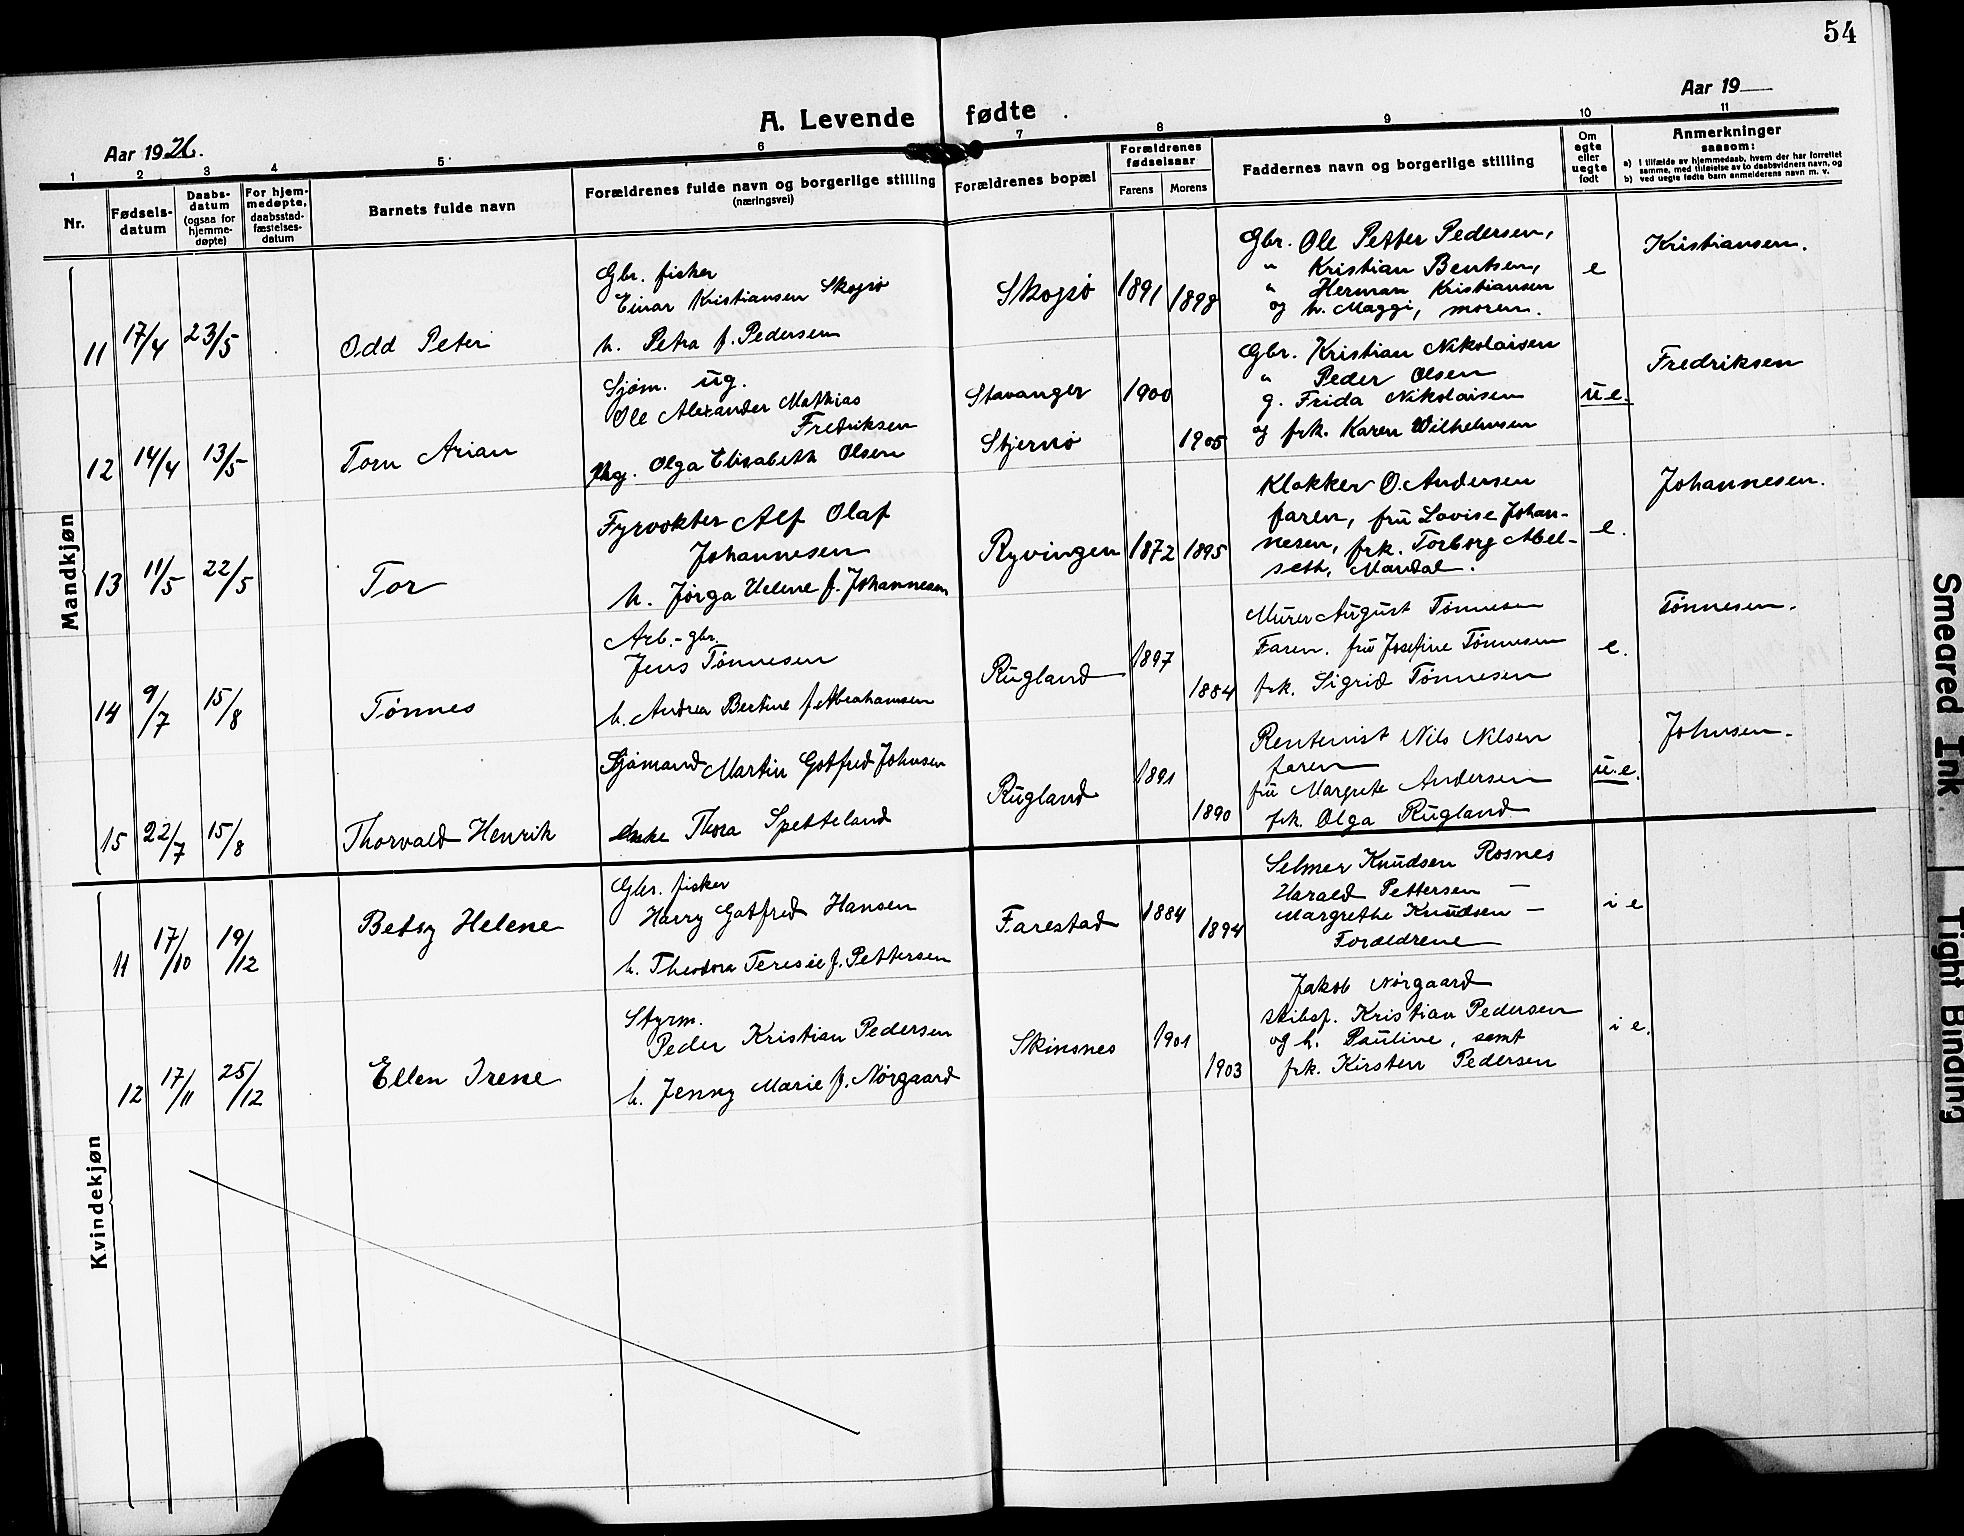 54
Aar 1926.
A. Levende fødte
Aar 19
1 2 3 4 5 6 7 8 9 10 11
Nr.
Fødsels-
datum
Daabs-
datum
(ogsaa for
hjemme-
døpte)
For hjem-
medøpte,
daabsstad-
fæstelses-
datum
Barnets fulde navn
Forældrenes fulde navn og borgerlige stilling
(næringsvei)
Forældrenes bopæl
Forældrenes
fødselsaar
Farens Morens
Faddernes navn og borgerlige stilling
Om
egte
eller
uegte
født
Anmerkninger
saasom:
a) I tilfælde av hjemmedaab, hvem der har forrettet
samme, med tilføielse av to daabsvidners navn, og
b) ved uegte fødte barn anmelderens navn m. v.
Mandkjøn
11 17/4 23/5 Odd Peter
Gbr. fisker
Einar Kristiansen Skogsø
h. Petra f. Pedersen
Skogsø 1891 1898
Gbr. Ole Petter Pedersen,
" Kristian Bentsen,
" Herman Kristiansen
og h. Maggi, moren.
e
Kristiansen.
12 14/4 13/5 Tom Arian
Sjøm. ug.
Ole Alexander Mathias
Fredriksen
Pig. Olga Elisabeth Olsen
Stavanger 1900
Stjernø 1905
Gbr. Kristian Nikolaisen
" Peder Olsen
g. Frida Nikolaisen
og frk. Karen Wilhelmsen
u e.
Fredriksen
13 11/5 22/5 Tor
Fyrvokter Alf Olaf
Johannesen
h. Jørga Helene f. Johannesen
Ryvingen 1872 1895
Klokker O. Andersen
faren, fru Lovise Johan-
nesen, frk. Torborg Abel-
seth, Mandal.
e.
Johannesen.
14 9/7 15/8 Tønnes
Arb.- gbr.
Jens Tønnesen
h. Andrea Bertine f. Abrahamsen
Rugland 1897 1884
Murer August Tønnesen
Faren. fru Josefine Tønnesen
frk. Sigrid Tønnesen
e.
Tønnesen.
15 22/7 15/8 Thorvald Henrik
Sjømand Martin Gotfred Johnsen
Enke Thora Spetteland
Rugland 1891 1890
Rentenist Nils Nilsen
faren
fru Margrete Andersen
frk. Olga Rugland
u.e.
Johnsen.
Kvindekjøn
11 17/10 19/12 Betsy Helene
Gbr. fisker
Harry Gotfred Hansen
h. Theodora Teresie f. Pettersen
Farestad 1884 1894
Selmer Knudsen Rosnes
Harald Pettersen —
Margrethe Knudsen —
Forældrene
i e
12 17/11 25/12 Ellen Irene
Styrm.
Peder Kristian Pedersen
h. Jenny Marie f. Nørgaard
Skinsnes 1901 1903
Jakob Nørgaard
skibsf. Kristian Pedersen
og h. Pauline, samt
frk. Kirsten Pedersen
i e.
Smeared Ink
Tight Binding